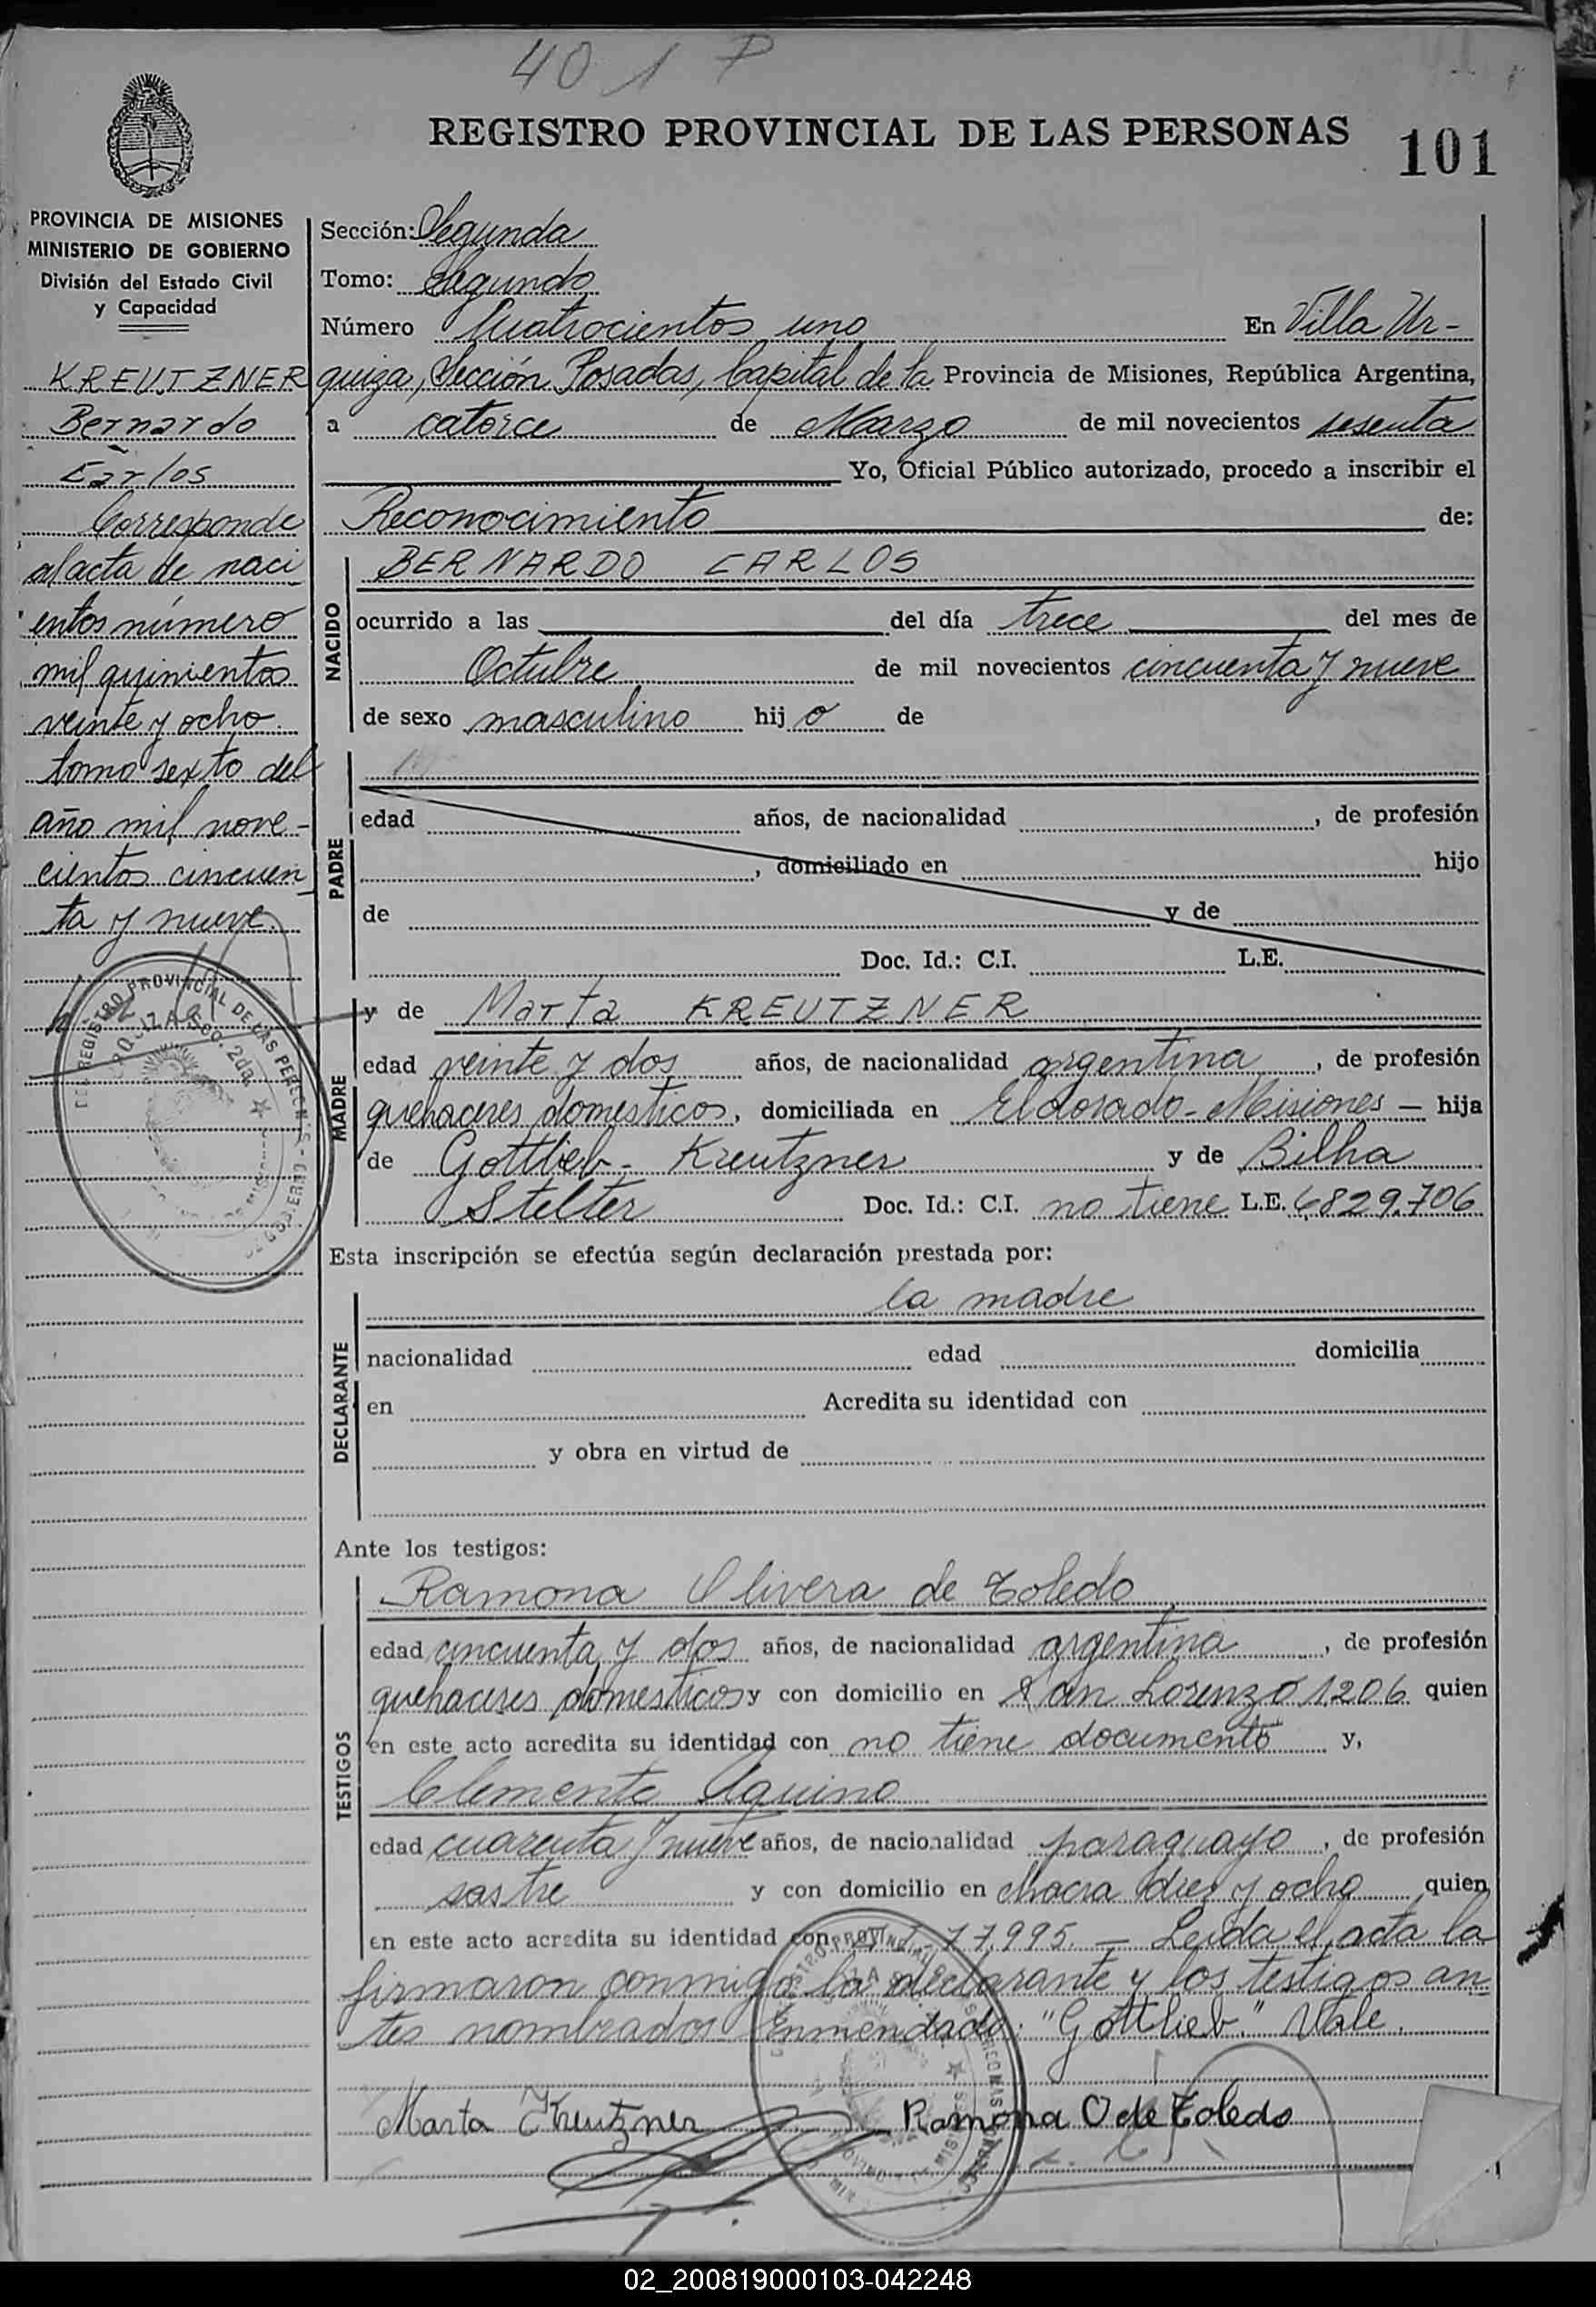 401 P
REGISTRO PROVINCIAL DE LAS PERSONAS 101
PROVINCIA DE MISIONES
MINISTERIO DE GOBIERNO
División del Estado Civil
y Capacidad
KREUTZNER
Bernardo
Carlos
Corresponde
al acta de naci
entos número
mil quinientos
veinte y ocho.
tomo sexto del
año mil nove-
cientos cincuen
ta y nueve.
Sección: Segunda
Tomo: Segundo
Número Cuatrocientos uno En Villa Ur-
quiza, Sección Posadas, Capital de la Provincia de Misiones, República Argentina,
a catorce de Marzo de mil novecientos sesenta
Yo, Oficial Público autorizado, procedo a inscribir el
Reconocimiento de:
NACIDO
BERNARDO CARLOS
ocurrido a las del día trece del mes de
Octubre de mil novecientos cincuenta y nueve
de sexo masculino hijo de
PADRE
edad años, de nacionalidad , de profesión
, domiciliado en hijo
de y de
Doc. Id.: C.I. L.E.
MADRE
y de Marta KREUTZNER
edad veinte y dos años, de nacionalidad argentina , de profesión
quehaceres domesticos, domiciliada en Eldorado - Misiones - hija
de Gottlieb - Kreutzner y de Bilha
Stelter Doc. Id.: C.I. no tiene L.E. 6829.706
Esta inscripción se efectúa según declaración prestada por:
DECLARANTE
la madre
nacionalidad edad domicilia
en Acredita su identidad con
y obra en virtud de
Ante los testigos:
TESTIGOS
Ramona Olivera de Toledo
edad cincuenta y dos años, de nacionalidad argentina , de profesión
quehaceres domesticos y con domicilio en San Lorenzo 1206 quien
en este acto acredita su identidad con no tiene documento y,
Clemente Aquino
edad cuarenta y nueve años, de nacionalidad paraguayo , de profesión
sastre y con domicilio en chacra diez y ocho quien
en este acto acredita su identidad con 77.995. - Leida el acta la
firmaron conmigo la declarante y los testigos an
tes nombrados Enmendado: "Gottlieb." Vale.
Marta Kreutzner Ramona O de Toledo
02_200819000103-042248